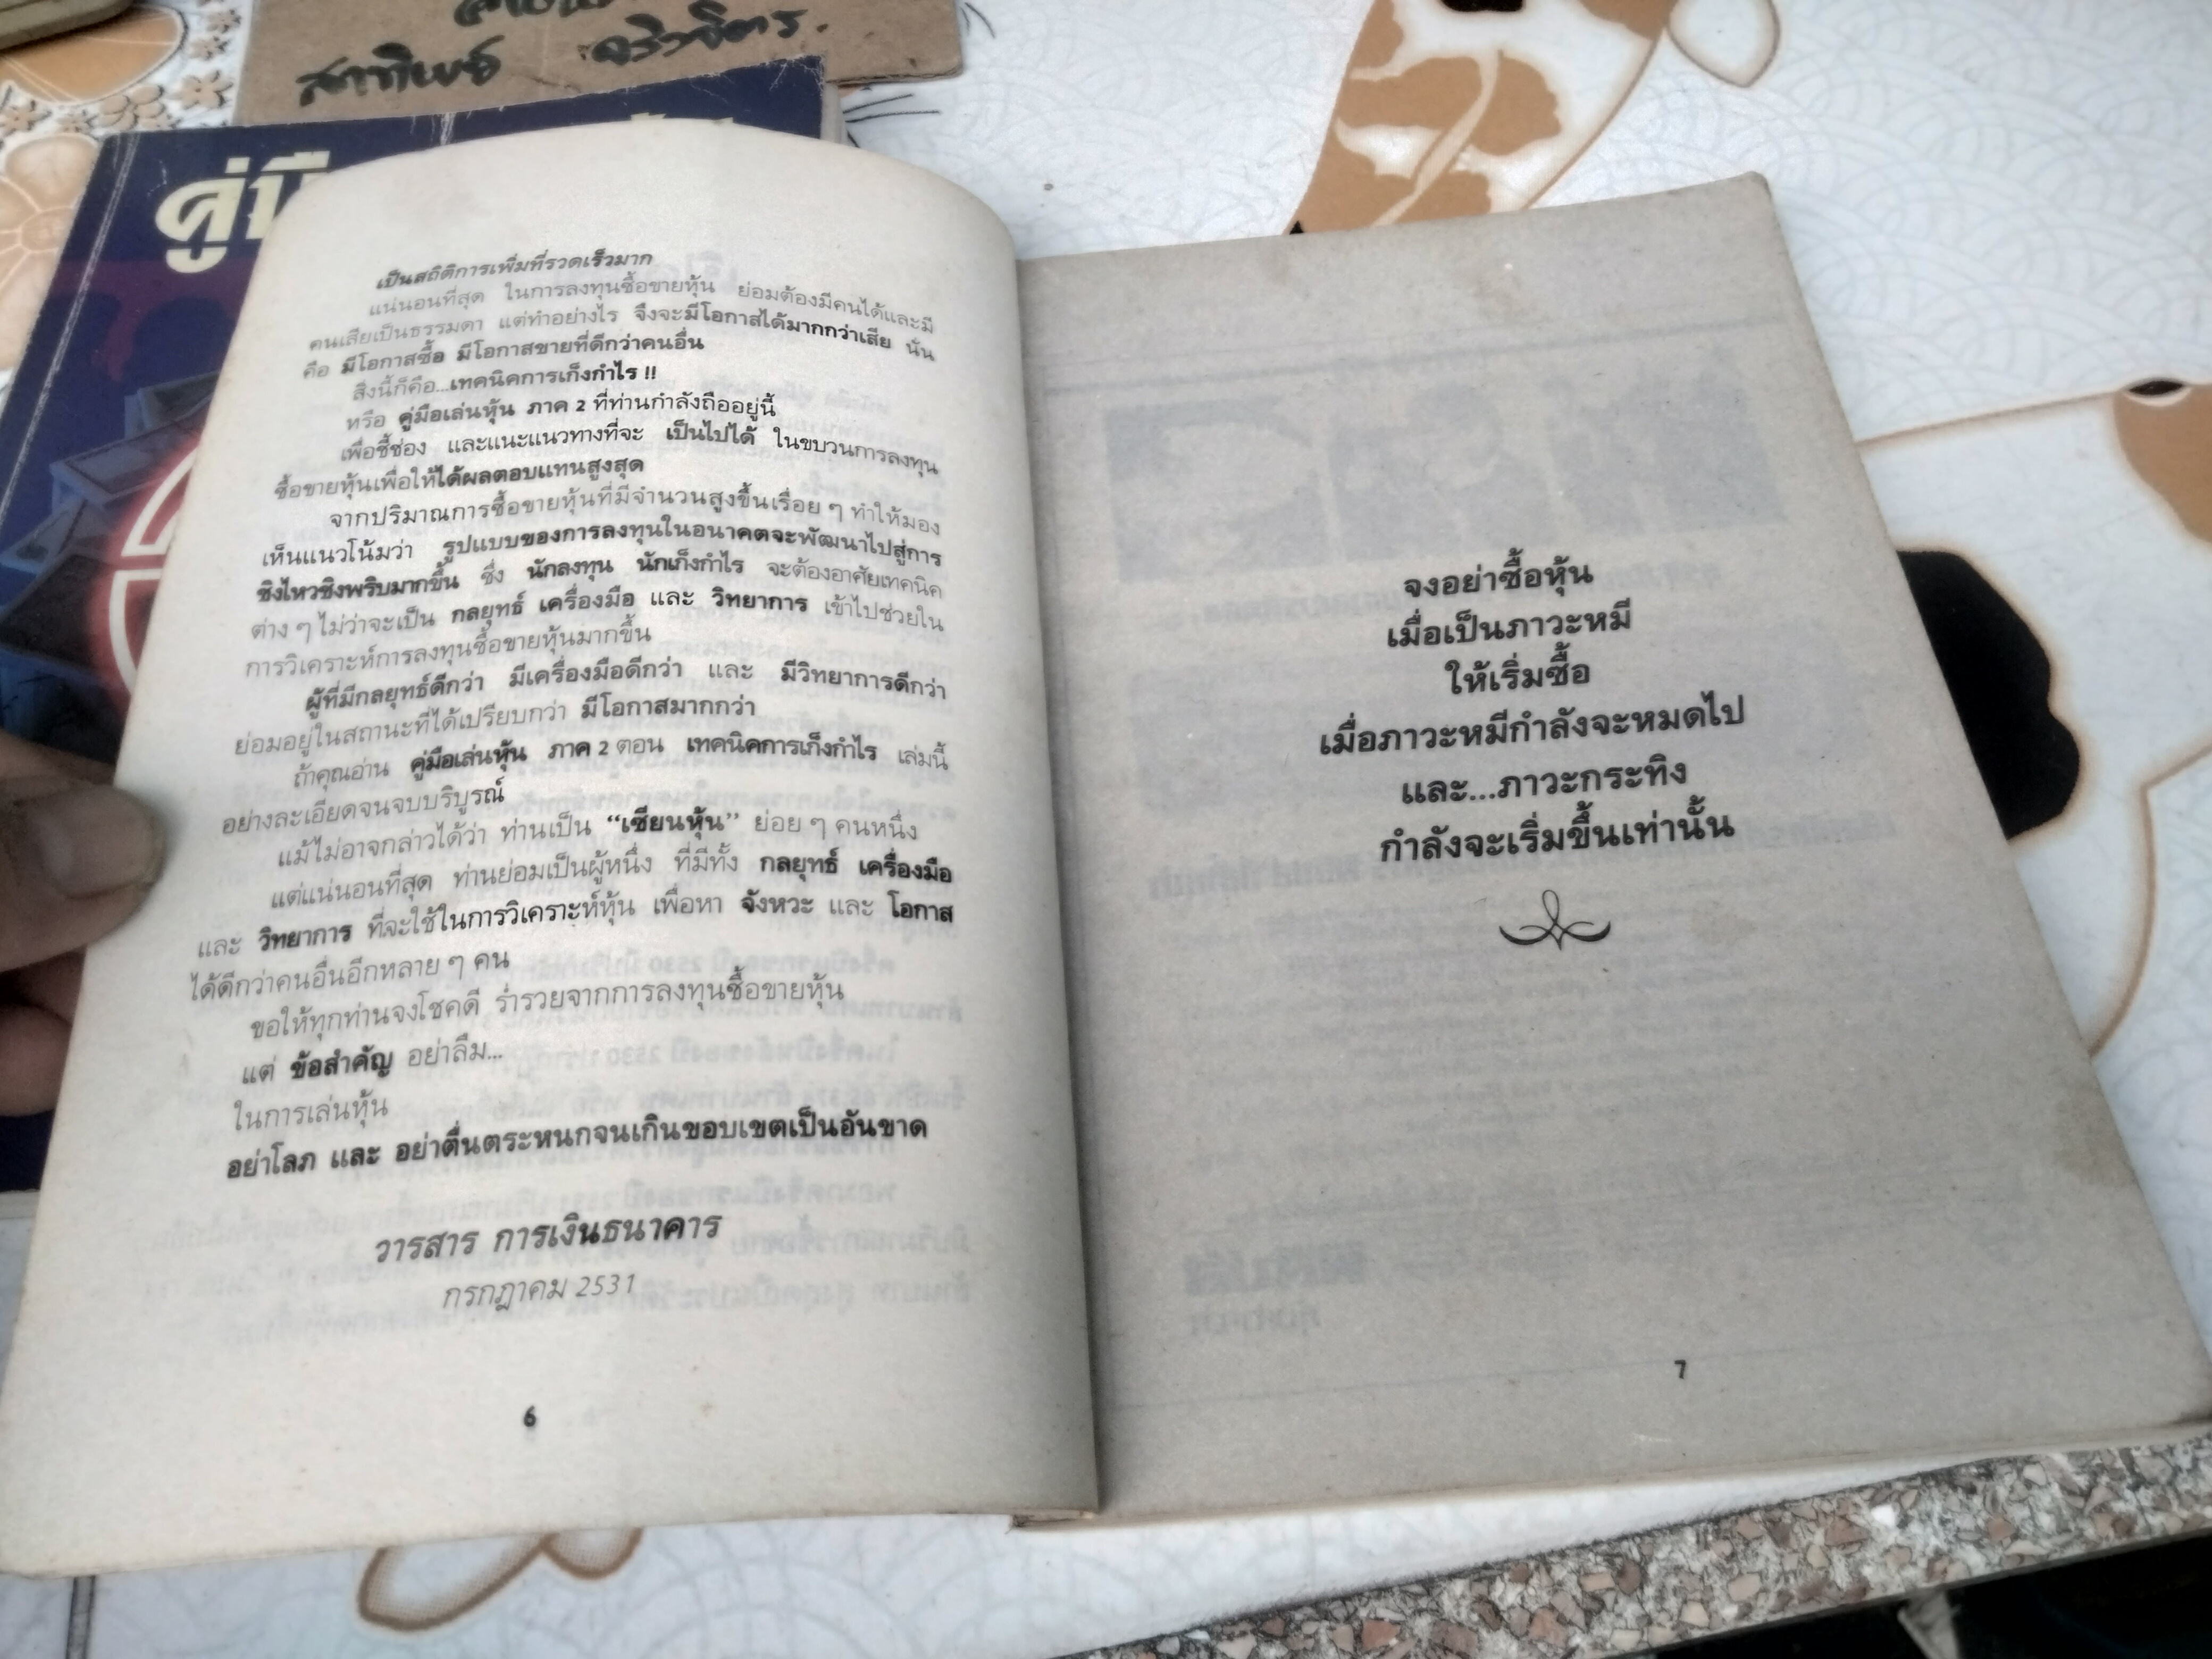 สาทิพย์
คู่มือ
เป็นสถิติการเพิ่มที่รวดเร็วมาก
แน่นอนที่สุด ในการลงทุนซื้อขายหุ้น ย่อมต้องมีคนได้และมี
คนเสียเป็นธรรมดา แต่ทำอย่างไร จึงจะมีโอกาสได้มากกว่าเสีย นั่น
คือ มีโอกาสซื้อ มีโอกาสขายที่ดีกว่าคนอื่น
สิ่งนี้ก็คือ...เทคนิคการเก็งกำไร !!
หรือ คู่มือเล่นหุ้น ภาค 2 ที่ท่านกำลังถืออยู่นี้
เพื่อชี้ช่อง และแนะแนวทางที่จะ เป็นไปได้ ในขบวนการลงทุน
ซื้อขายหุ้นเพื่อให้ได้ผลตอบแทนสูงสุด
จากปริมาณการซื้อขายหุ้นที่มีจำนวนสูงขึ้นเรื่อย ๆ ทำให้มอง
เห็นแนวโน้มว่า รูปแบบของการลงทุนในอนาคตจะพัฒนาไปสู่การ
ชิงไหวชิงพริบมากขึ้น ซึ่ง นักลงทุน นักเก็งกำไร จะต้องอาศัยเทคนิค
ต่าง ๆ ไม่ว่าจะเป็น กลยุทธ์ เครื่องมือ และ วิทยาการ เข้าไปช่วยใน
การวิเคราะห์การลงทุนซื้อขายหุ้นมากขึ้น
ผู้ที่มีกลยุทธ์ดีกว่า มีเครื่องมือดีกว่า และ มีวิทยาการดีกว่า
ย่อมอยู่ในสถานะที่ได้เปรียบกว่า มีโอกาสมากกว่า
ถ้าคุณอ่าน คู่มือเล่นหุ้น ภาค 2 ตอน เทคนิคการเก็งกำไร เล่มนี้
อย่างละเอียดจนจบบริบูรณ์
แม้ไม่อาจกล่าวได้ว่า ท่านเป็น “เซียนหุ้น” ย่อย ๆ คนหนึ่ง
แต่แน่นอนที่สุด ท่านย่อมเป็นผู้หนึ่ง ที่มีทั้ง กลยุทธ์ เครื่องมือ
และ วิทยาการ ที่จะใช้ในการวิเคราะห์หุ้น เพื่อหา จังหวะ และ โอกาส
ได้ดีกว่าคนอื่นอีกหลาย ๆ คน
ขอให้ทุกท่านจงโชคดี ร่ำรวยจากการลงทุนซื้อขายหุ้น
แต่ ข้อสำคัญ อย่าลืม...
ในการเล่นหุ้น
อย่าโลภ และ อย่าตื่นตระหนกจนเกินขอบเขตเป็นอันขาด
วารสาร การเงินธนาคาร
กรกฎาคม 2531
6
จงอย่าซื้อหุ้น
เมื่อเป็นภาวะหมี
ให้เริ่มซื้อ
เมื่อภาวะหมีกำลังจะหมดไป
และ...ภาวะกระทิง
กำลังจะเริ่มขึ้นเท่านั้น
7